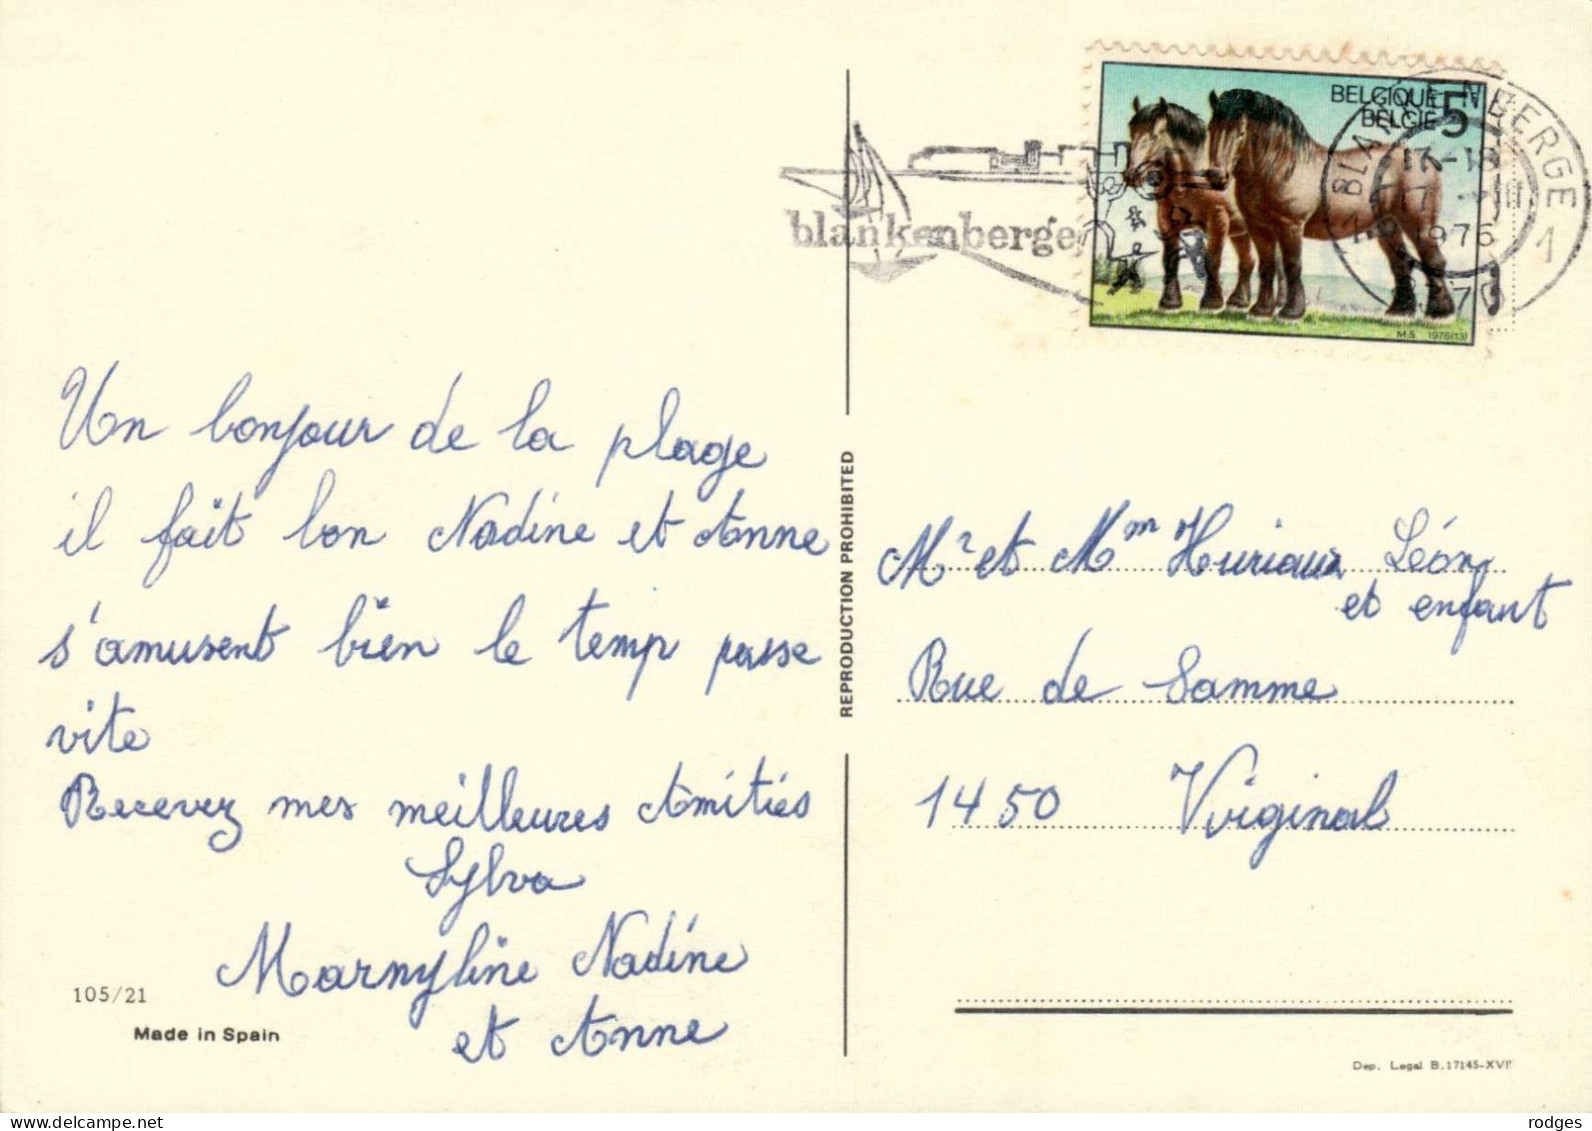 Un bonjour de la plage
il fait bon Nadine et Anne
s'amusent bien le temp passe
vite
Recevez mes meilleures Amitiés
Sylva
Marnyline Nadine
et Anne
105/21
Made in Spain
REPRODUCTION PROHIBITED
blankenberge
BELGIQUE 5
BELGIË
M.S. 1976(13)
BLANKENBERGE
17-18
17
1976
1
Mr et Mm Huriaux Léon
et enfant
Rue de Samme
1450 Virginal
Dep. Legal B. 17145-XVI
rodges